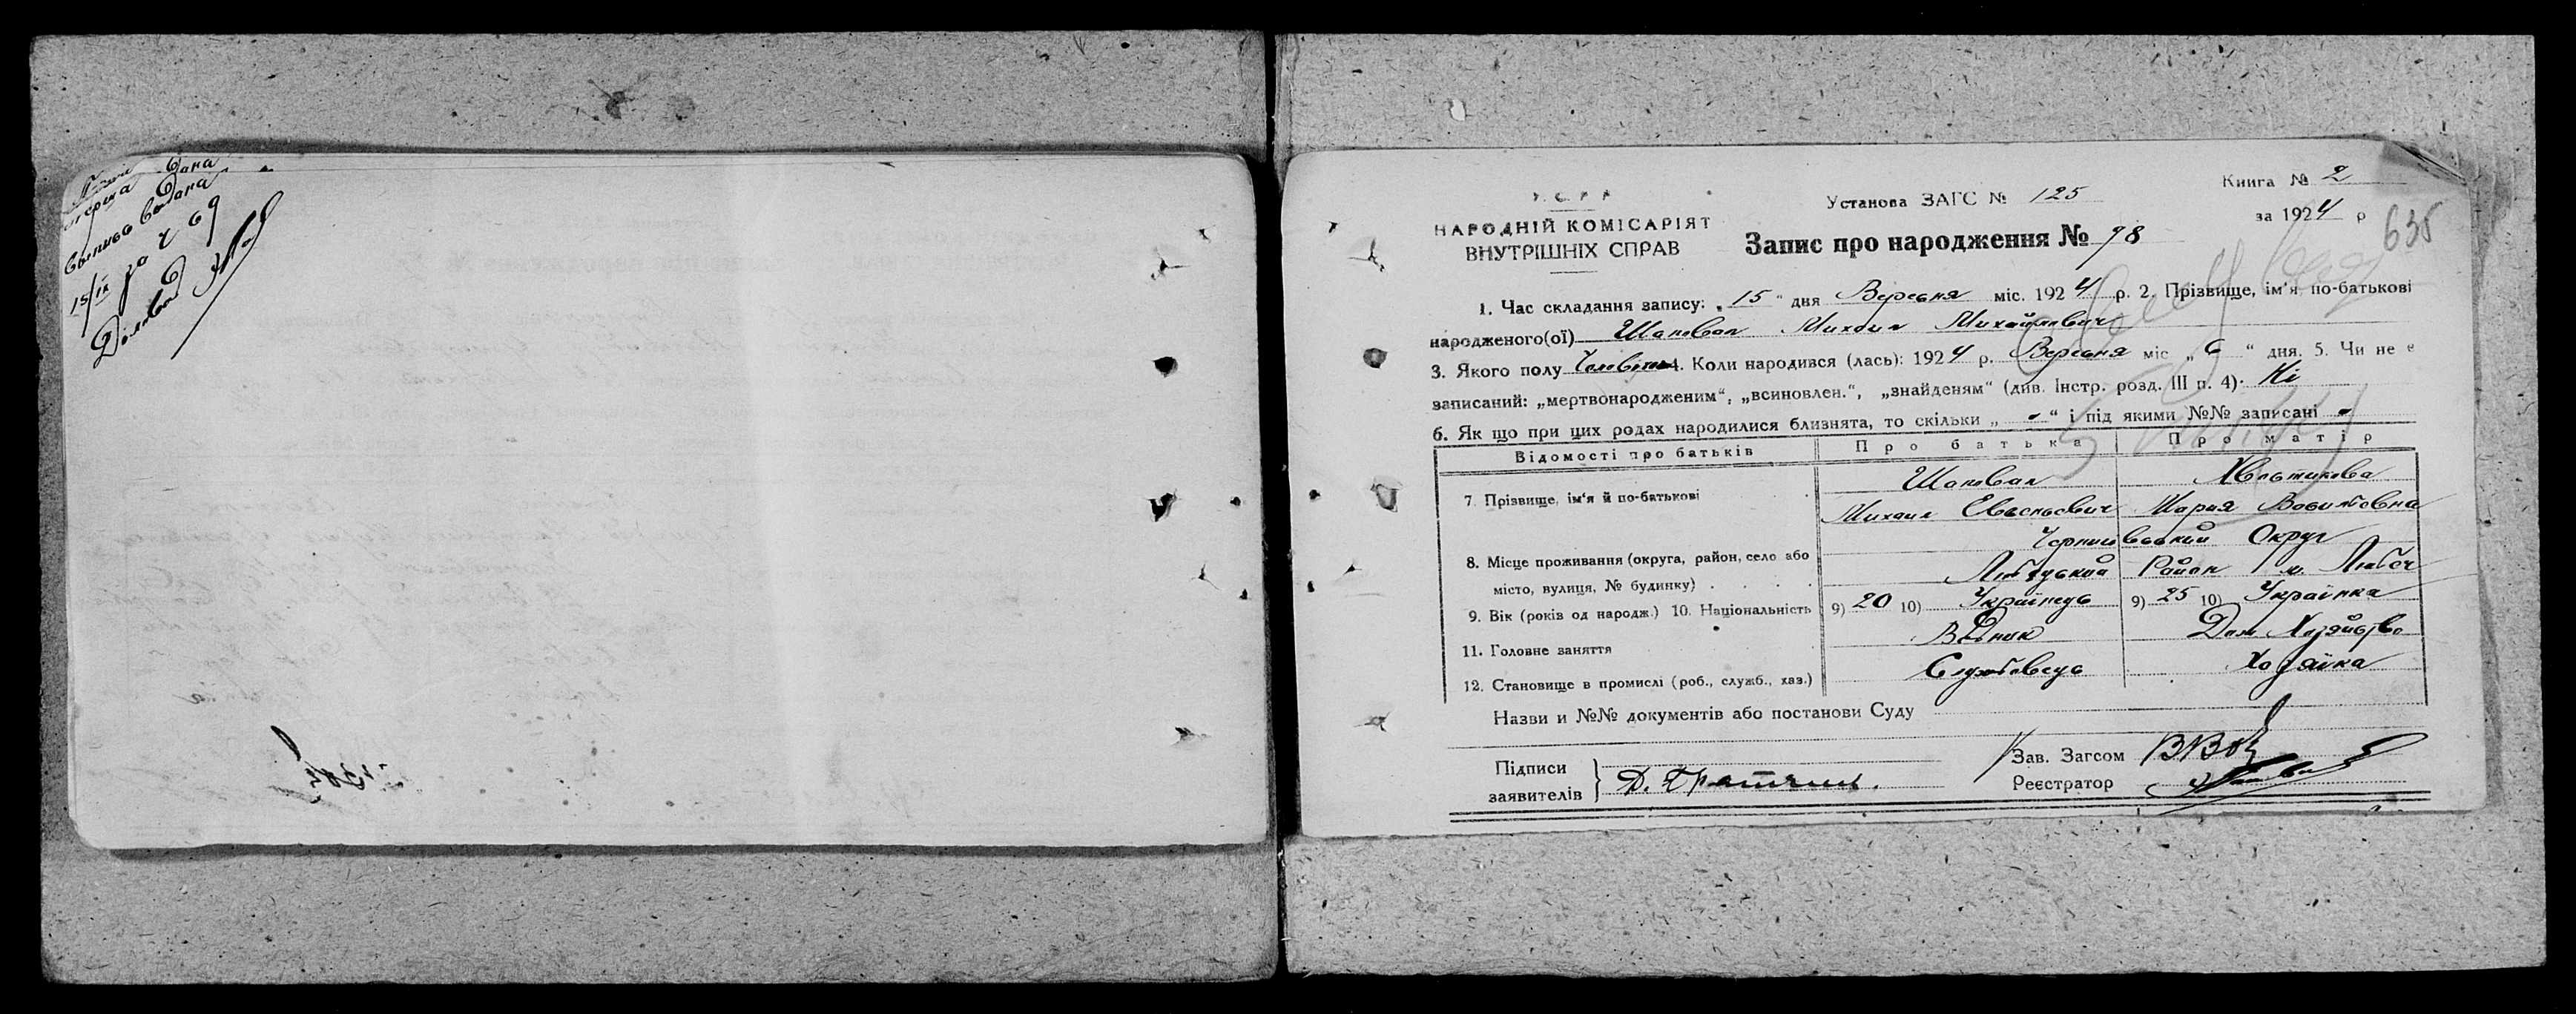 15/IX за № 69
У.С.Р.Р.
НАРОДНІЙ КОМІСАРІЯТ
ВНУТРІШНІХ СПРАВ
Установа ЗАГС № 125
Книга № 2
за 1924 р
635
Запис про народження № 98
1. Час складання запису: „15“ дня Вересня міс. 1924 р. 2. Прізвище, ім'я, по-батькові
народженого(ої) Шаповал Михаил Михайлович
3. Якого полу Чоловіч. 4. Коли народився (лась): 1924 р. Вересня міс „6“ дня. 5. Чи не є
записаний: „мертвонародженим“, „всиновлен.“, „знайденям“ (див. Інстр. розд. III п. 4). Ні
6. Як що при цих родах народилися близнята, то скільки „-“ і під якими №№ записані -
Відомості про батьків Про батька Про матір
7. Прізвище, ім'я й по-батькові Шаповал Хвостикова
Михаил Мария
8. Місце проживання (округа, район, село або Чернигівський Округ
місто, вулиця, № будинку) Любецький Район м. Любеч
9. Вік (років од народж.) 10. Національність 9) 20 10) Українець 9) 25 10) Українка
11. Головне заняття Водник Дом. Хозяйство
12. Становище в промислі (роб., служб., хаз.) Службовець Хозяйка
Назви и №№ документів або постанови Суду
Підписи
заявителів
Зав. Загсом
Реєстратор